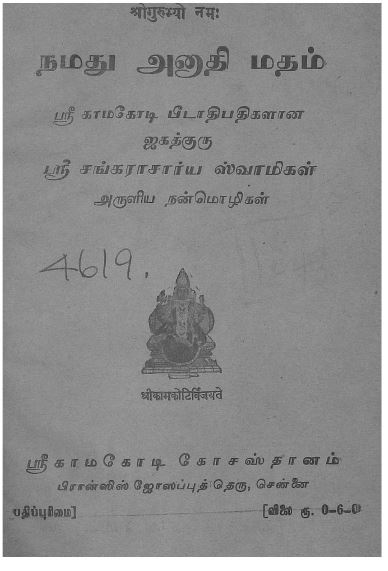 श्रीगुरुभ्यो नमः
நமது அனாதி மதம்
ஸ்ரீ காமகோடி பீடாதிபதிகளான
ஜகத்குரு
ஸ்ரீ சங்கராசார்ய ஸ்வாமிகள்
அருளிய நன்மொழிகள்
4619.
श्रीकामकोटिर्विजयते
ஸ்ரீ காமகோடி கோசஸ்தானம்
பிரான்ஸிஸ் ஜோஸப்புத் தெரு, சென்னை
பதிப்புரிமை] [விலை ரூ. 0-6-0